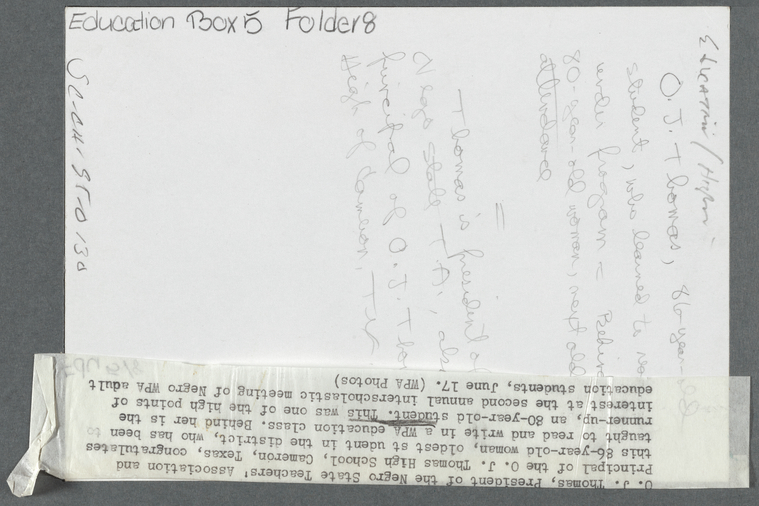 Education Box 5 Folder 8
SC-CN-95-0130
Education/
O. J. Thomas, 86-year-old
student, who learned to
under program - Behind
80-year-old woman, next oldest
attendance
=
Thomas is president of
Negro State T A, also
principal of O. J. Thomas
High of Cameron, Tex
O. J. Thomas, President of the Negro State Teachers' Association and
Principal of the O. J. Thomas High School, Cameron, Texas, congratulates
this 86-year-old woman, oldest st udent in the district, who has been to
taught to read and write in a WPA education class. Behind her is the
runner-up, an 80-year-old student. This was one of the high points of
interest at the second annual interscholastic meeting of Negro WPA adult
education students, June 17. (WPA Photos)